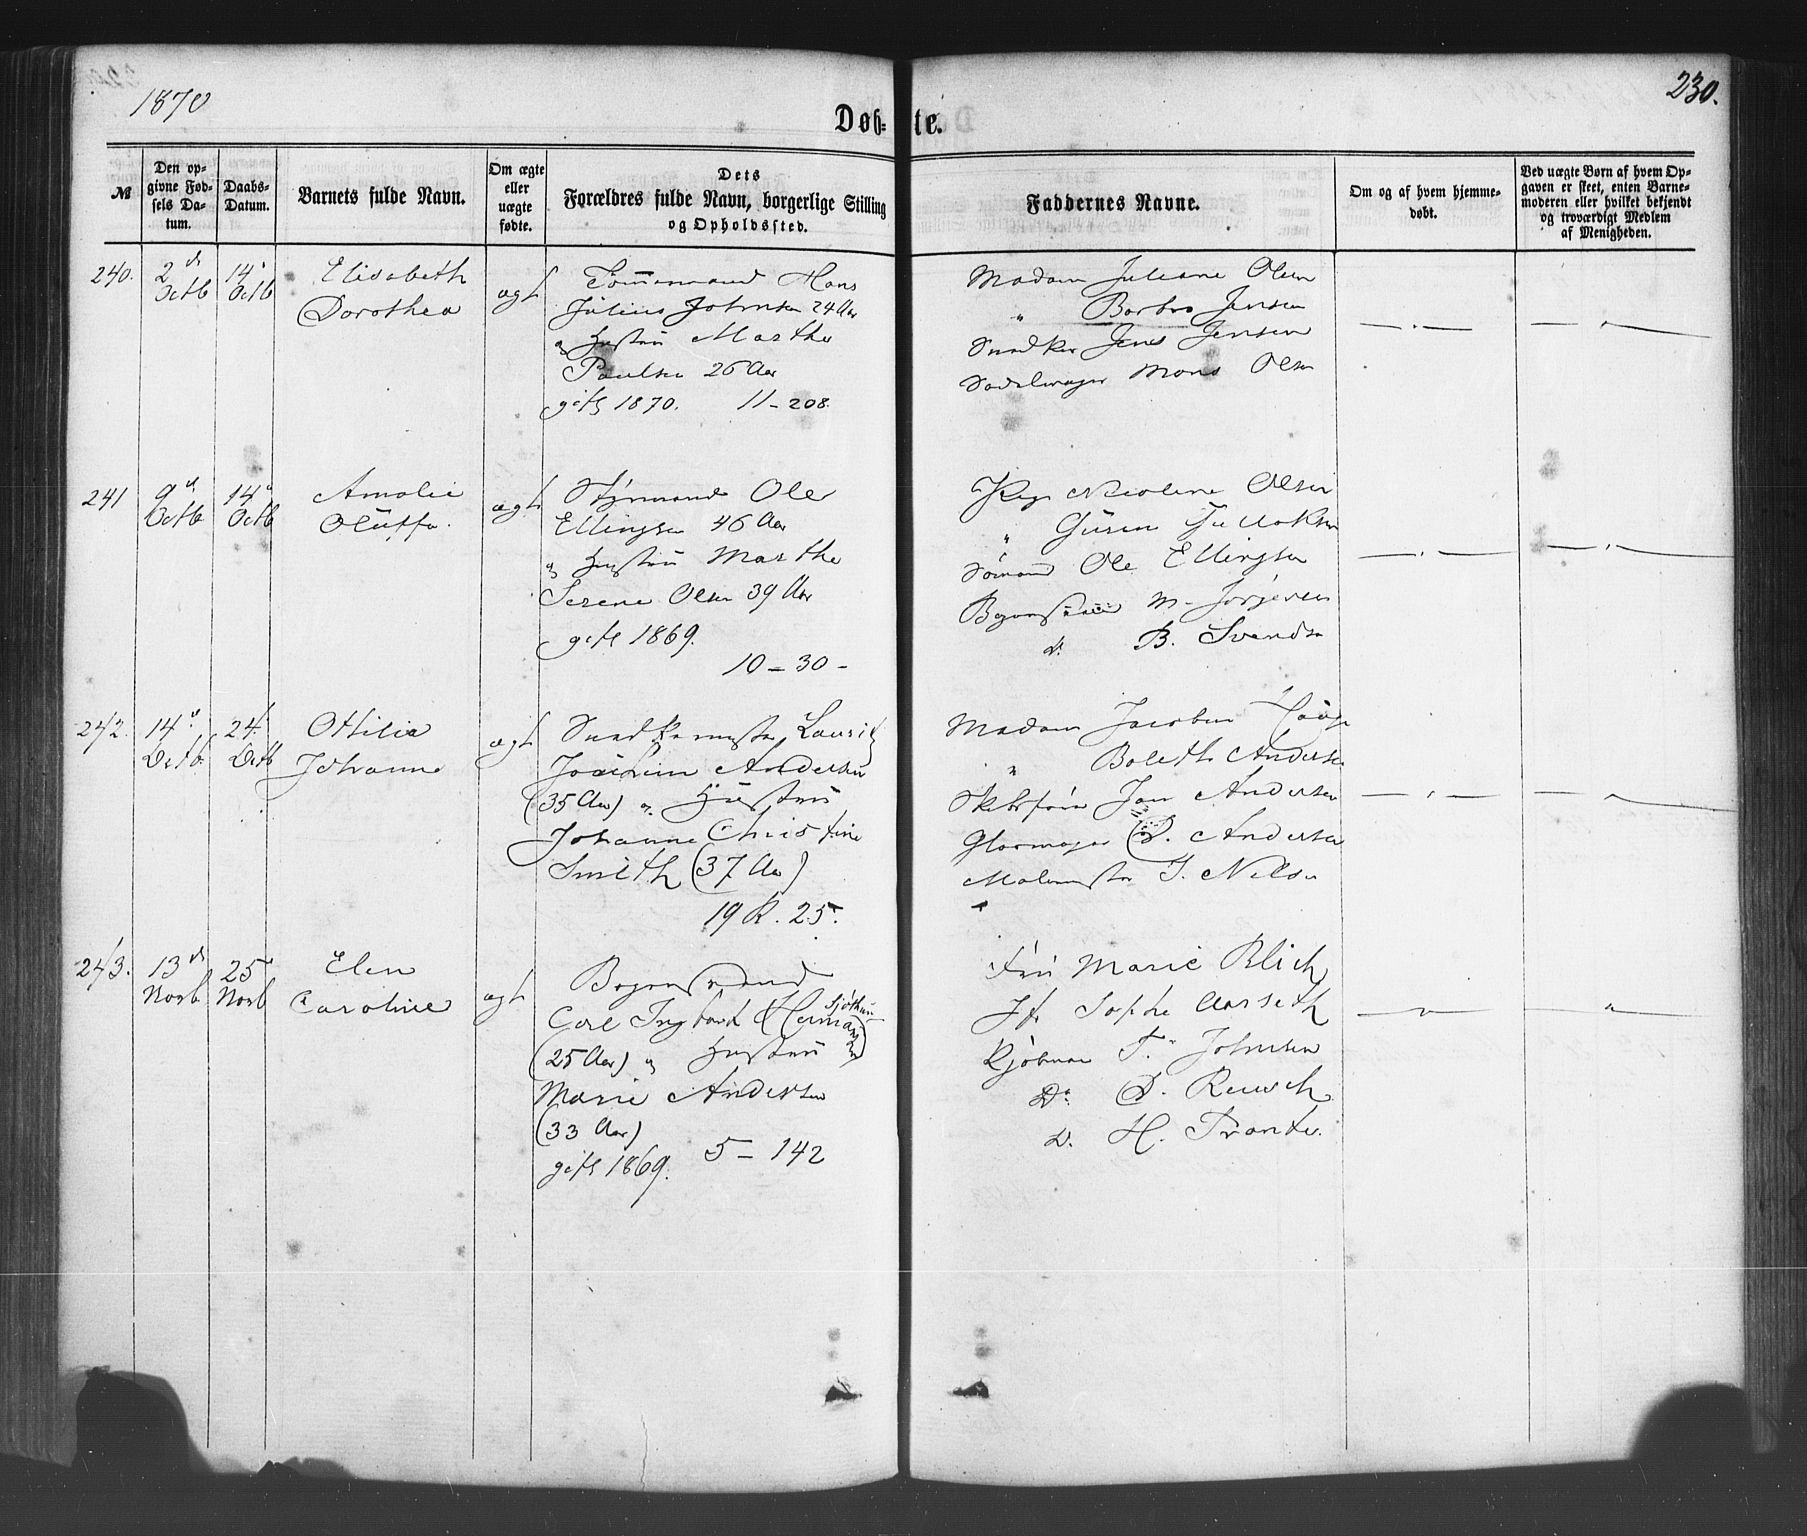 1870
230.
Døb-
te.
№
Den op-
givne Fød-
sels Da-
tum.
Daabs-
Datum.
Barnets fulde Navn.
Om ægte
eller
uægte
fødte.
Dets
Forældres fulde Navn, borgerlige Stilling
og Opholdssted.
Faddernes Navne.
Om og af hvem hjemme-
døbt.
Ved uægte Børn af hvem Op-
gaven er skeet, enten Barne-
moderen eller hvilket bekjendt
og troværdigt Medlem
af Menigheden.
240.
2d
Octb
14d
Octb
Elisabeth
Dorothea
ægt
Tømmermand Hans
Julius Johnsen 24 Aar
og Hustru Marthe
Paulsen 26 Aar
gift 1870. 11 - 208.
Madam Juliane Olsen
" Barbro Jensen
Snedker Jens Jensen
Sadelmager Mons Olsen
241
9d
Octb
14d
Octb
Amalie
Oluffa.
ægt
Styrmand Ole
Ellingsen 46 Aar
og Hustru Marthe
Serene Olsen 39 Aar
gift 1869.
10 - 30 -
Pige Nicoline Olsen
" Guren
Sømand Ole Ellingsen
Bogensvend M. Jørgensen
do. B. Svendsen
242.
14d
Octb.
24d
Octb
Othilie
Johanne
ægt
Snedkermester Lauritz
Joachim Andersen
(35 Aar) og Hustru
Johanne Christine
Smith (37 Aar)
19 K. 25.
Madam Jacobine
" Boleth Andersen
Skibsfører Jan Andersen
Glarmager D. Andersen
Malermester J. Nilsen
243.
13d
Novb
25d
Novb
Elen
Caroline
ægt
Bogensvend
Carl Ingbart Herman
(25 Aar) og Hustru
Marie Andersen
(33 Aar)
gift 1869. 5 - 142
Fru Marie Blich
Jf. Sophie Aarseth
Kjøbman T. Johnsen
Do. D. Reusch
do. H. Trante.